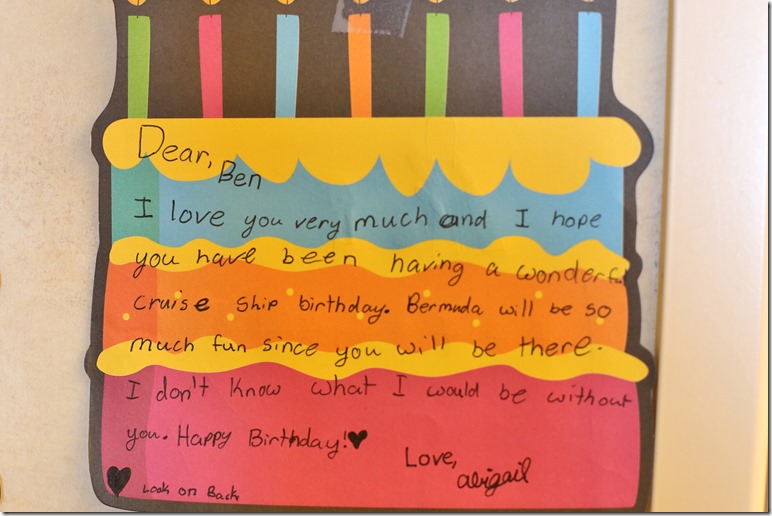 Dear,
Ben
I love you very much and I hope
you have been having a wonderful
cruise ship birthday. Bermuda will be so
much fun since you will be there.
I don't know what I would be without
you. Happy Birthday!♥
Love,
abigail
♥ Look on Back